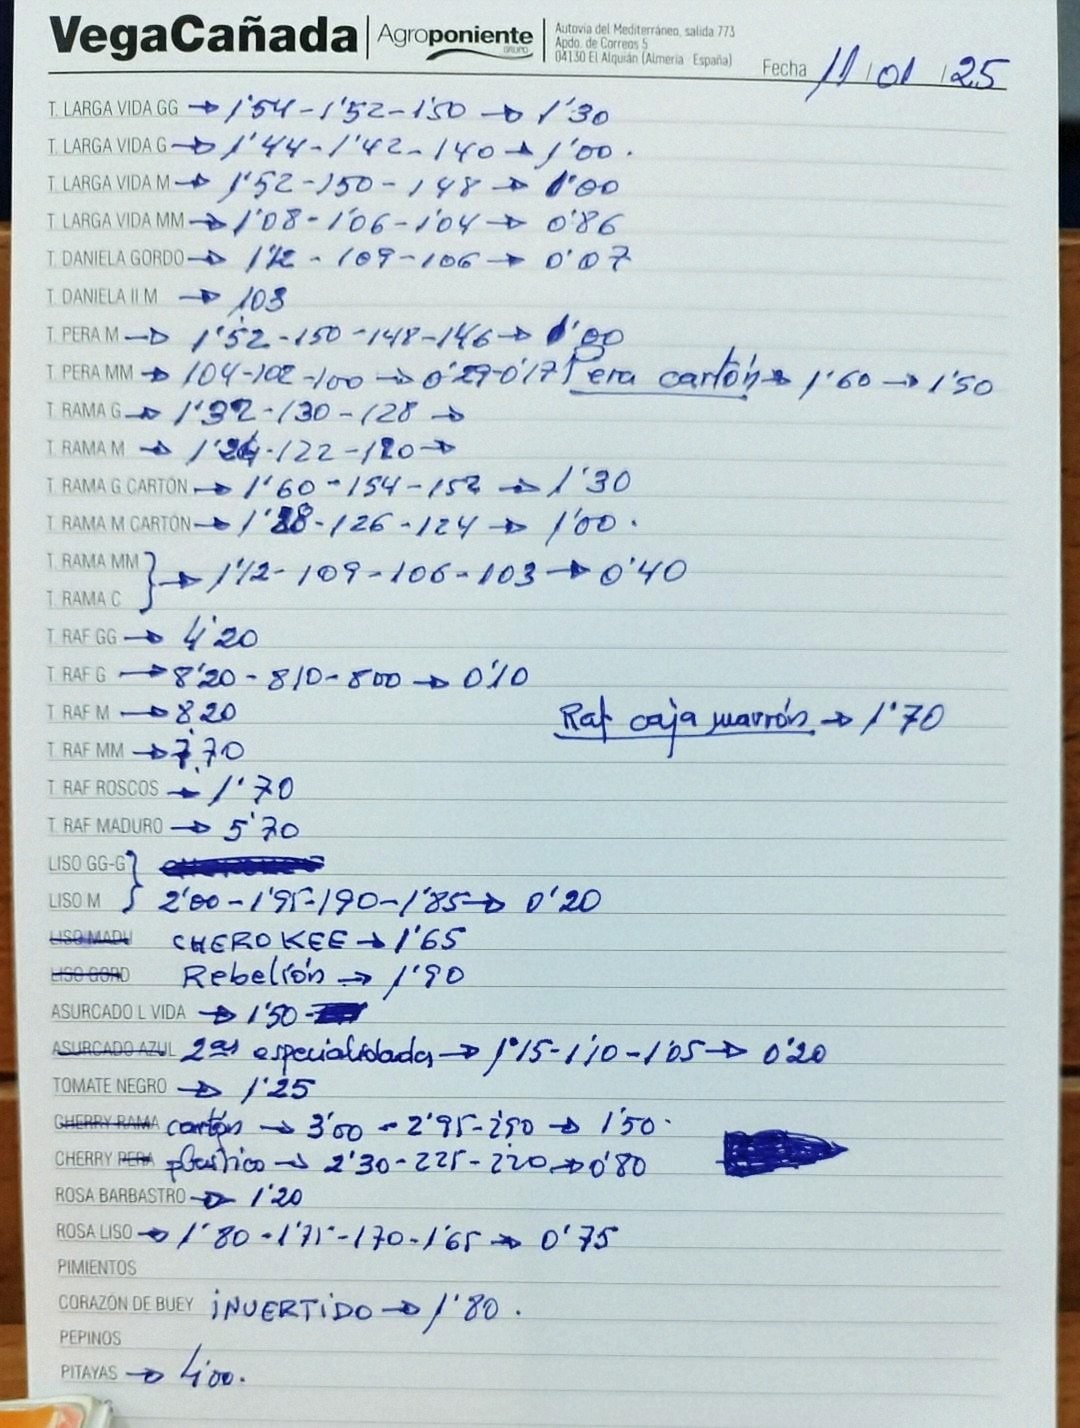 VegaCañada Agroponiente GRUPO
Autovía del Mediterráneo, salida 773
Apdo. de Correos 5
04130 El Alquián (Almería España)
Fecha 11/01/25
T. LARGA VIDA GG → 1'54-1'52-1'50 → 1'30
T. LARGA VIDA G → 1'44-1'42-140 → 1'00.
T. LARGA VIDA M → 1'52-150-148 → 1'00
T. LARGA VIDA MM → 1'08-1'06-1'04 → 0'86
T. DANIELA GORDO → 1'12-109-106 → 0'07
T. DANIELA II M → 103
T. PERA M → 1'52-150-148-146 → 1'00
T. PERA MM → 104-102-100 → 0'29-0'17 Pera cartón → 1'60 → 1'50
T. RAMA G → 1'32-130-128 →
T. RAMA M → 1'24-122-120 →
T. RAMA G CARTÓN → 1'60-154-152 → 1'30
T. RAMA M CARTÓN → 1'28-126-124 → 1'00.
T. RAMA MM
T. RAMA C } → 1'12-109-106-103 → 0'40
T. RAF GG → 4'20
T. RAF G → 8'20-810-800 → 0'10
T. RAF M → 820 Raf caja marrón → 1'70
T. RAF MM → 7'70
T. RAF ROSCOS → 1'70
T. RAF MADURO → 5'70
LISO GG-G
LISO M } 2'00-1'95-190-1'85 → 0'20
LISO MADU CHEROKEE → 1'65
LISO GORD Rebelión → 1'90
ASURCADO L VIDA → 1'50-
ASURCADO AZUL 2as especialidades → 1'15-1'10-1'05 → 0'20
TOMATE NEGRO → 1'25
CHERRY RAMA cartón → 3'00-2'95-290 → 1'50.
CHERRY PERA plastico → 2'30-225-220 → 0'80
ROSA BARBASTRO → 1'20
ROSA LISO → 1'80-1'75-170-1'65 → 0'75
PIMIENTOS
CORAZÓN DE BUEY INVERTIDO → 1'80.
PEPINOS
PITAYAS → 4'00.